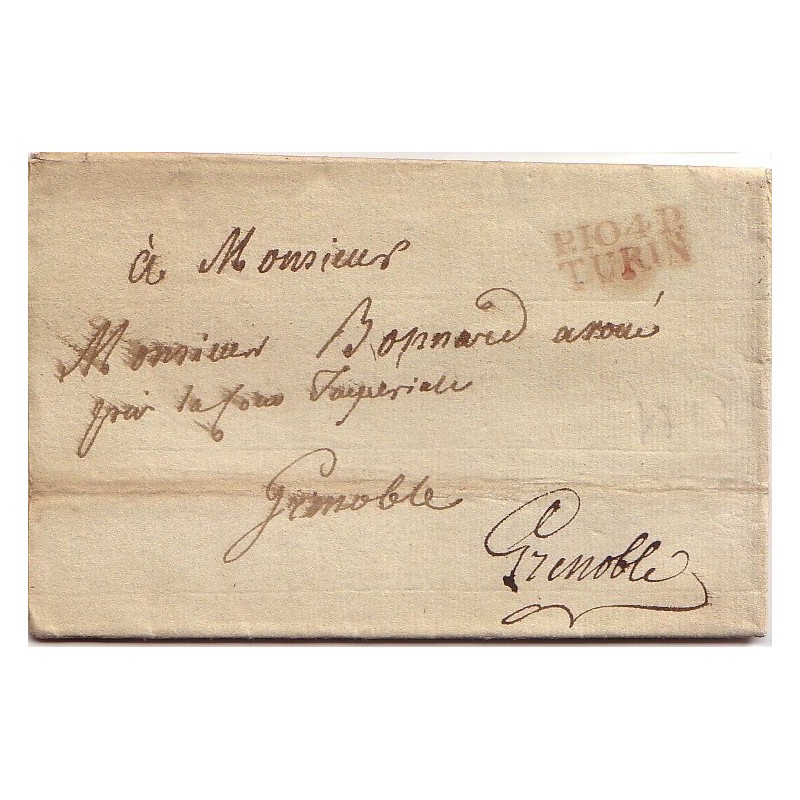 à Monsieur
P.104.P.
TURIN
Monsieur Bonnard avoué
près la Cour Impériale
Grenoble
Grenoble